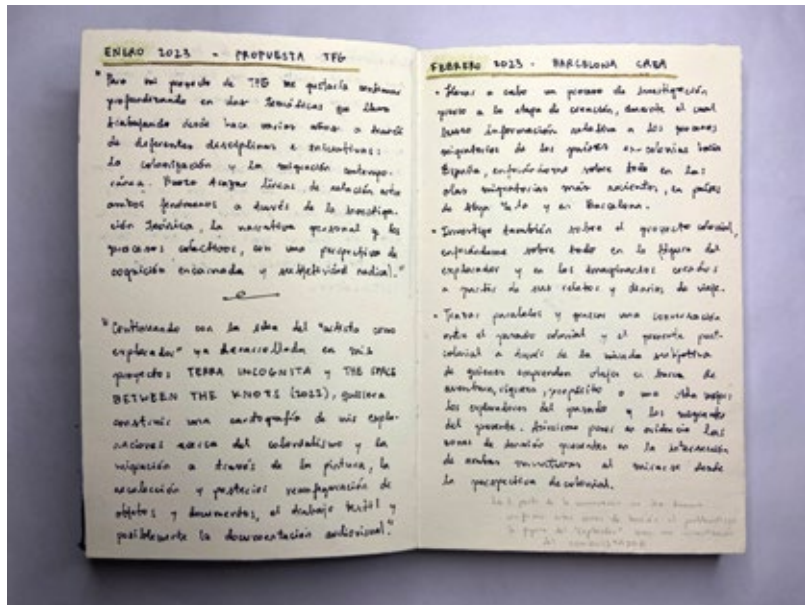 ENERO 2023 - PROPUESTA TFG
"Para mi proyecto de TFG me gustaría continuar
profundizando en dos temáticas que llevo
trabajando desde hace varios años a través
de diferentes disciplinas e iniciativas:
la colonización y la migración contempo-
ránea. Busco trazar líneas de relación entre
ambos fenómenos a través de la investiga-
ción teórica, la narrativa personal y los
procesos colectivos, con una perspectiva de
cognición encarnada y subjetividad radical."
"Continuando con la idea del "artista como
explorador" ya desarrollada en mis
proyectos TERRA INCOGNITA y THE SPACE
BETWEEN THE KNOTS (2022), quisiera
construir una cartografía de mis explo-
raciones acerca del colonialismo y la
migración a través de la pintura, la
recolección y posterior reconfiguración de
objetos y documentos, el trabajo textil y
posiblemente la documentación audiovisual."
FEBRERO 2023 - BARCELONA CREA
• Llevar a cabo un proceso de investigación
previo a la etapa de creación, durante el cual
busco información relativa a los procesos
migratorios de los países ex-colonias hacia
España, enfocándome sobre todo en las
olas migratorias más recientes, en países
de y en Barcelona.
• Investigo también sobre el proyecto colonial,
enfocándome sobre todo en la figura del
explorador y en los imaginarios creados
a partir de sus relatos y diarios de viaje.
• Trazar paralelos y generar una conversación
entre el pasado colonial y el presente post-
colonial a través de la mirada subjetiva
de quienes emprenden viajes en busca de
aventura, riqueza, propósito o una vida mejor:
los exploradores del pasado y los migrantes
del presente. Asimismo poner en evidencia las
zonas de tensión presentes en la intersección
de ambas narrativas al mirarse desde
la perspectiva decolonial.